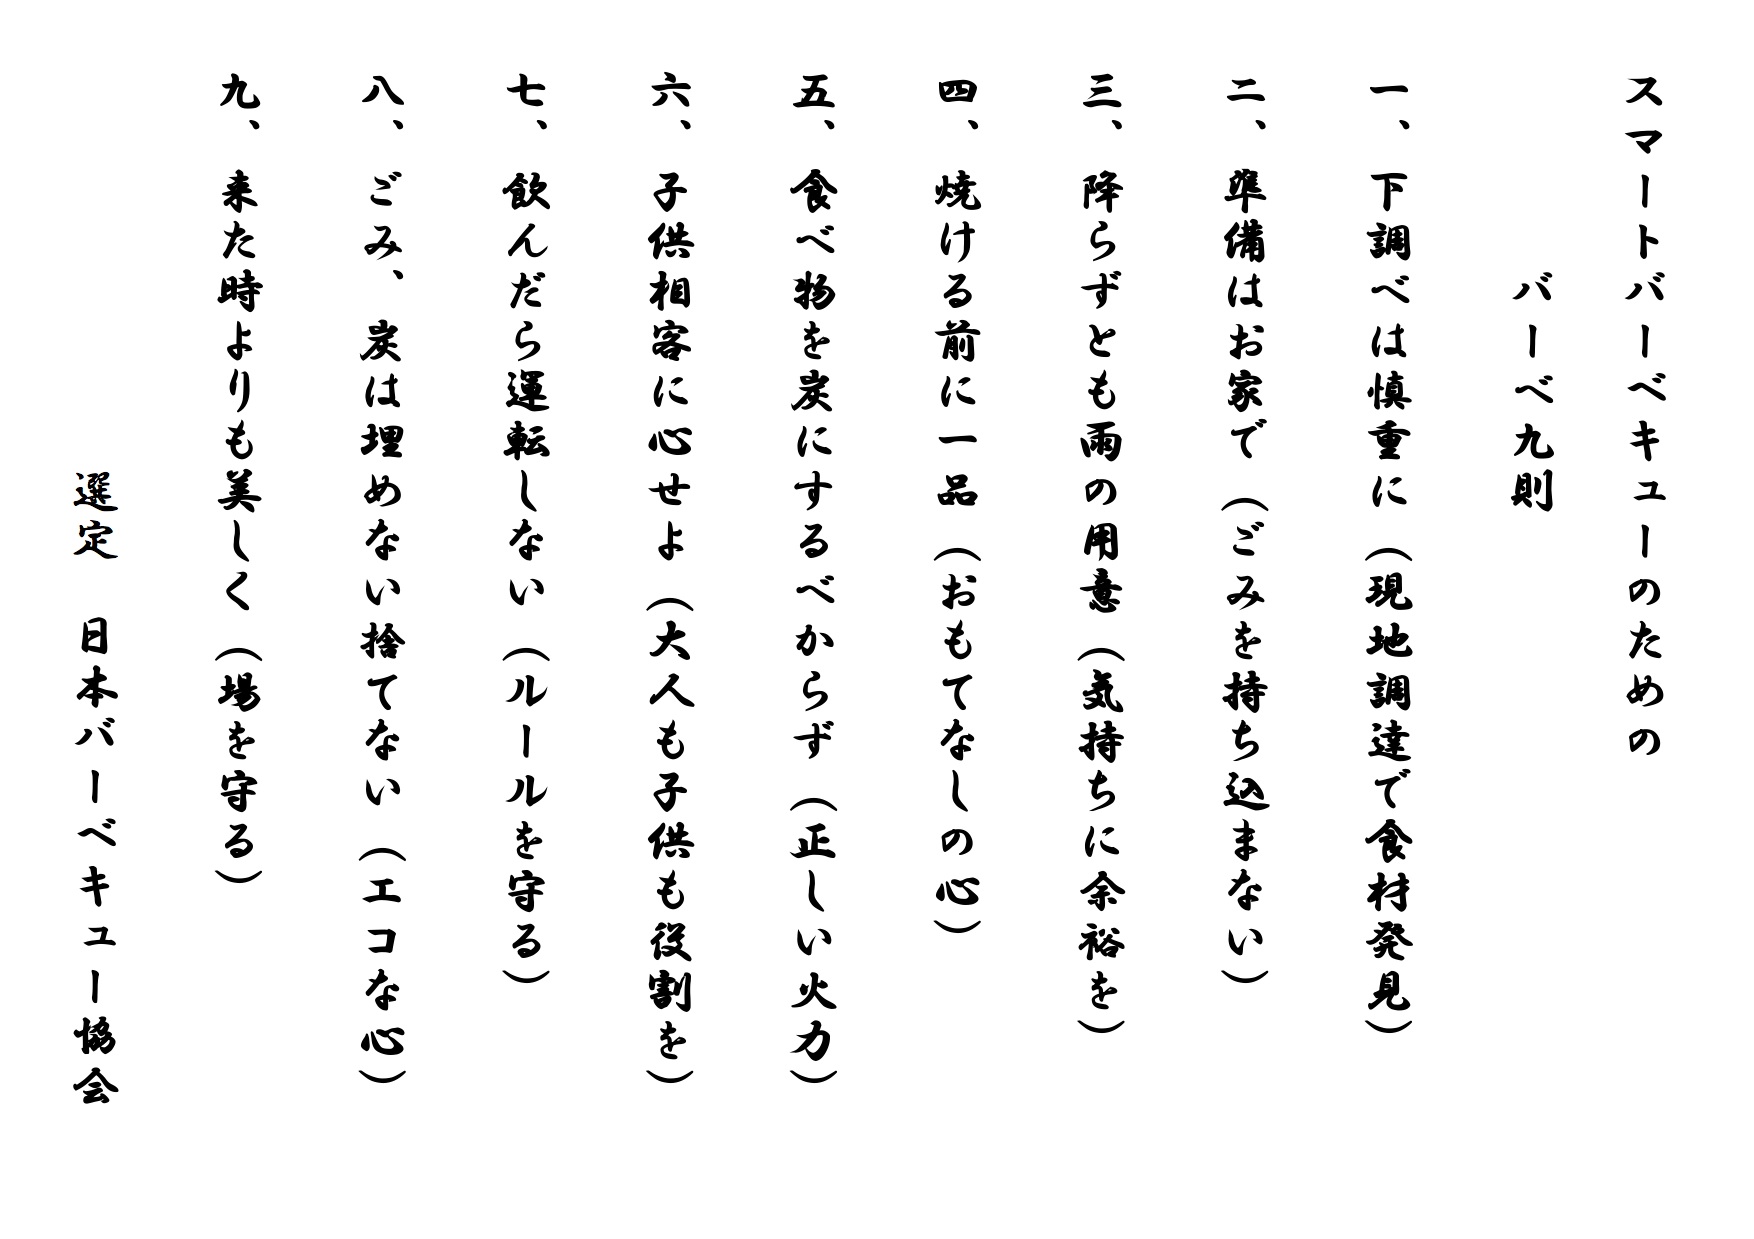 スマートバーベキューのための
バーベ九則
一、下調べは慎重に（現地調達で食材発見）
二、準備はお家で（ごみを持ち込まない）
三、降らずとも雨の用意（気持ちに余裕を）
四、焼ける前に一品（おもてなしの心）
五、食べ物を炭にするべからず（正しい火力）
六、子供相客に心せよ（大人も子供も役割を）
七、飲んだら運転しない（ルールを守る）
八、ごみ、炭は埋めない捨てない（エコな心）
九、来た時よりも美しく（場を守る）
選定　日本バーベキュー協会